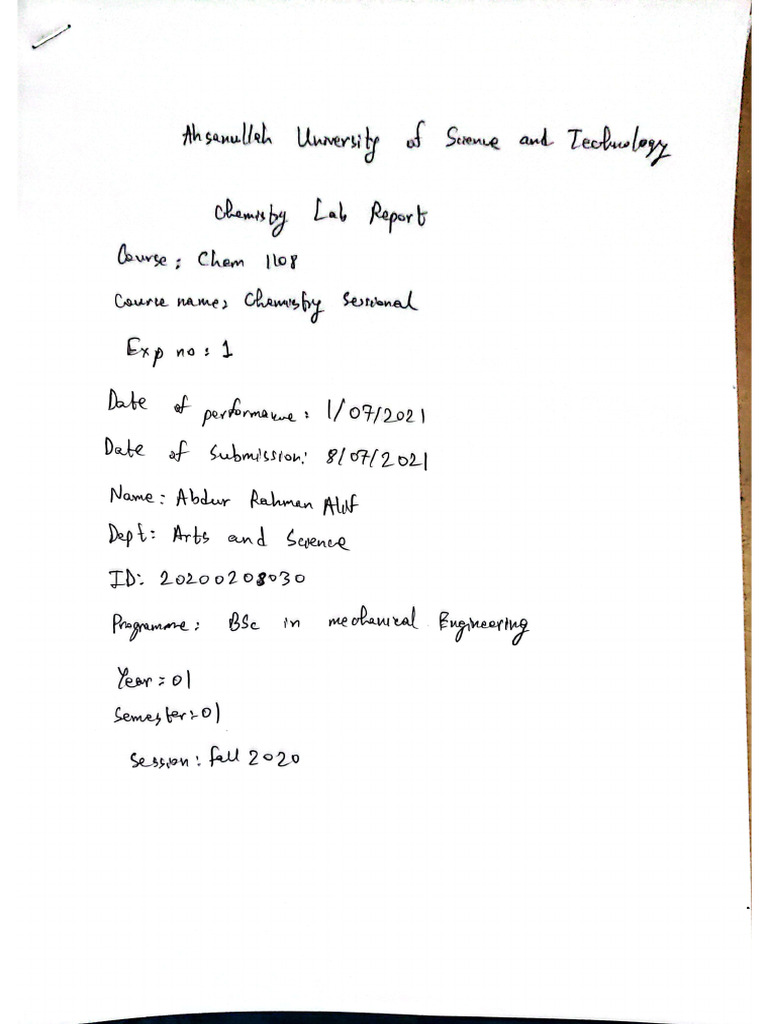 Ahsanullah University of Science and Technology
Chemistry Lab Report
Course: Chem 1108
Course name: Chemistry Sessional
Exp no: 1
Date of performance: 1/07/2021
Date of submission: 8/07/2021
Name: Abdur Rahman Alif
Dept: Arts and Science
ID: 20200208030
Programme: BSc in mechanical Engineering
Year: 01
Semester: 01
Session: fall 2020